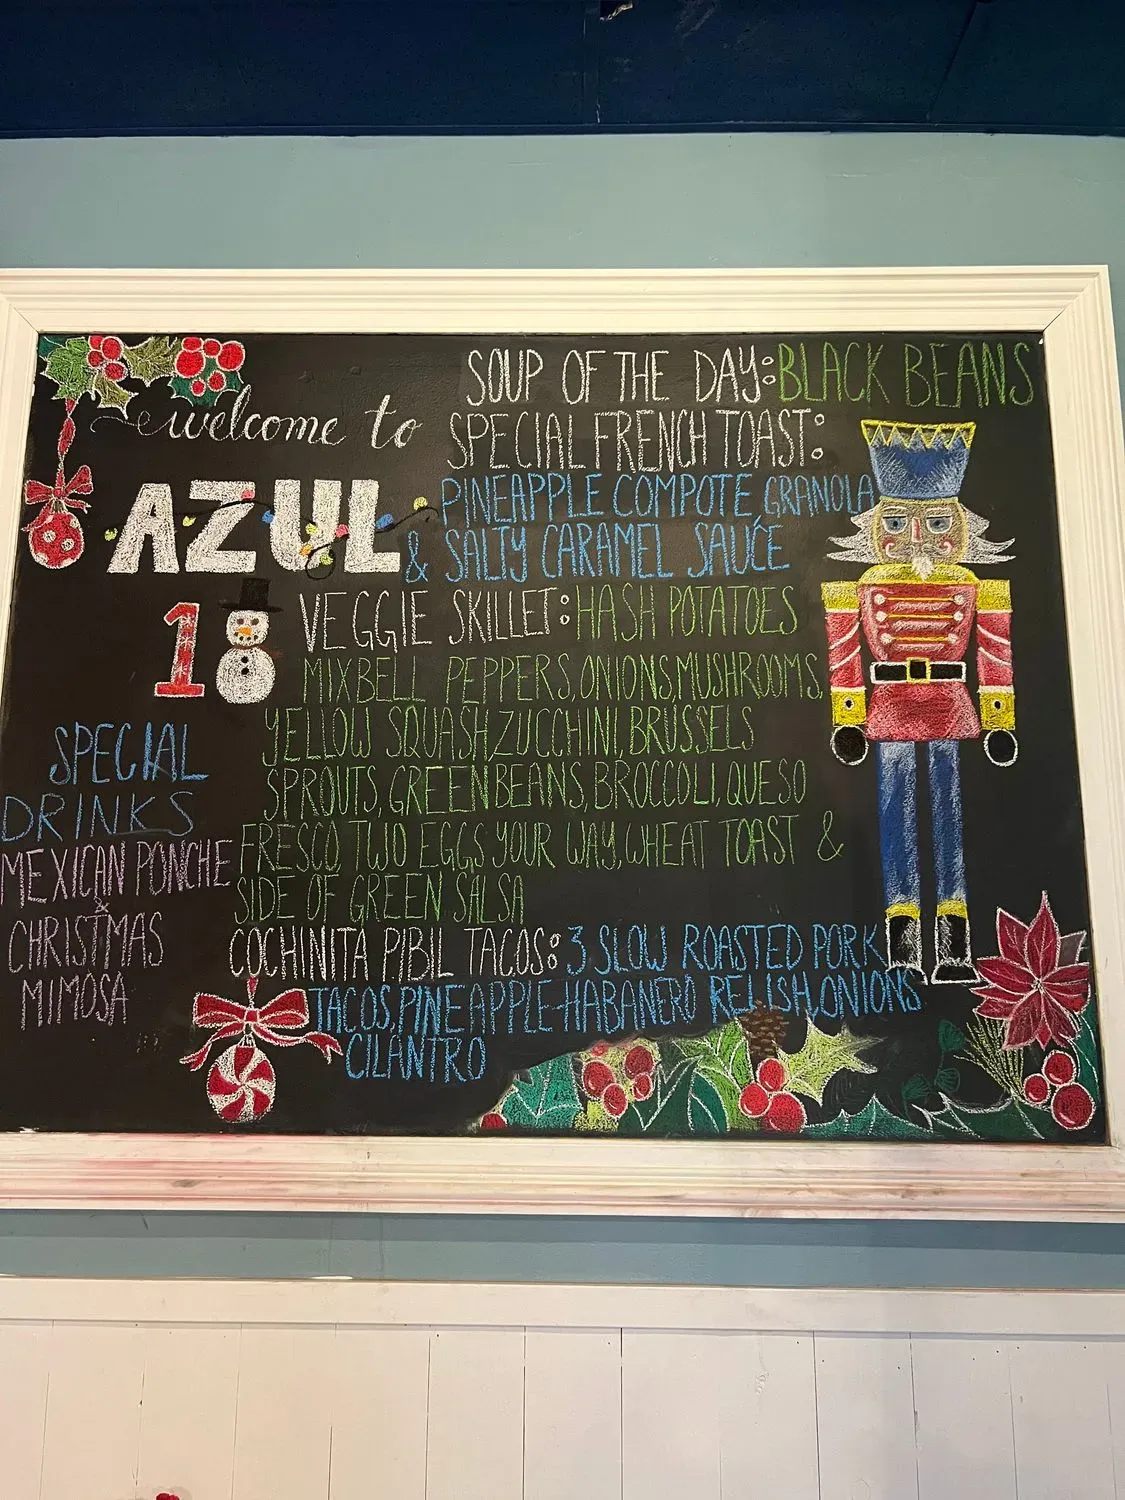 welcome to
AZUL
18
SPECIAL
DRINKS
MEXICAN PONCHE
&
CHRISTMAS
MIMOSA
SOUP OF THE DAY: BLACK BEANS
SPECIAL FRENCH TOAST:
PINEAPPLE COMPOTE GRANOLA
& SALTY CARAMEL SAUCE
VEGGIE SKILLET: HASH POTATOES
MIX BELL PEPPERS, ONIONS, MUSHROOMS,
YELLOW SQUASH, ZUCCHINI, BRUSSELS
SPROUTS, GREEN BEANS, BROCCOLI, QUESO
FRESCO, TWO EGGS YOUR WAY, WHEAT TOAST &
SIDE OF GREEN SALSA
COCHINITA PIBIL TACOS: 3 SLOW ROASTED PORK
TACOS, PINEAPPLE-HABANERO RELISH, ONIONS
CILANTRO